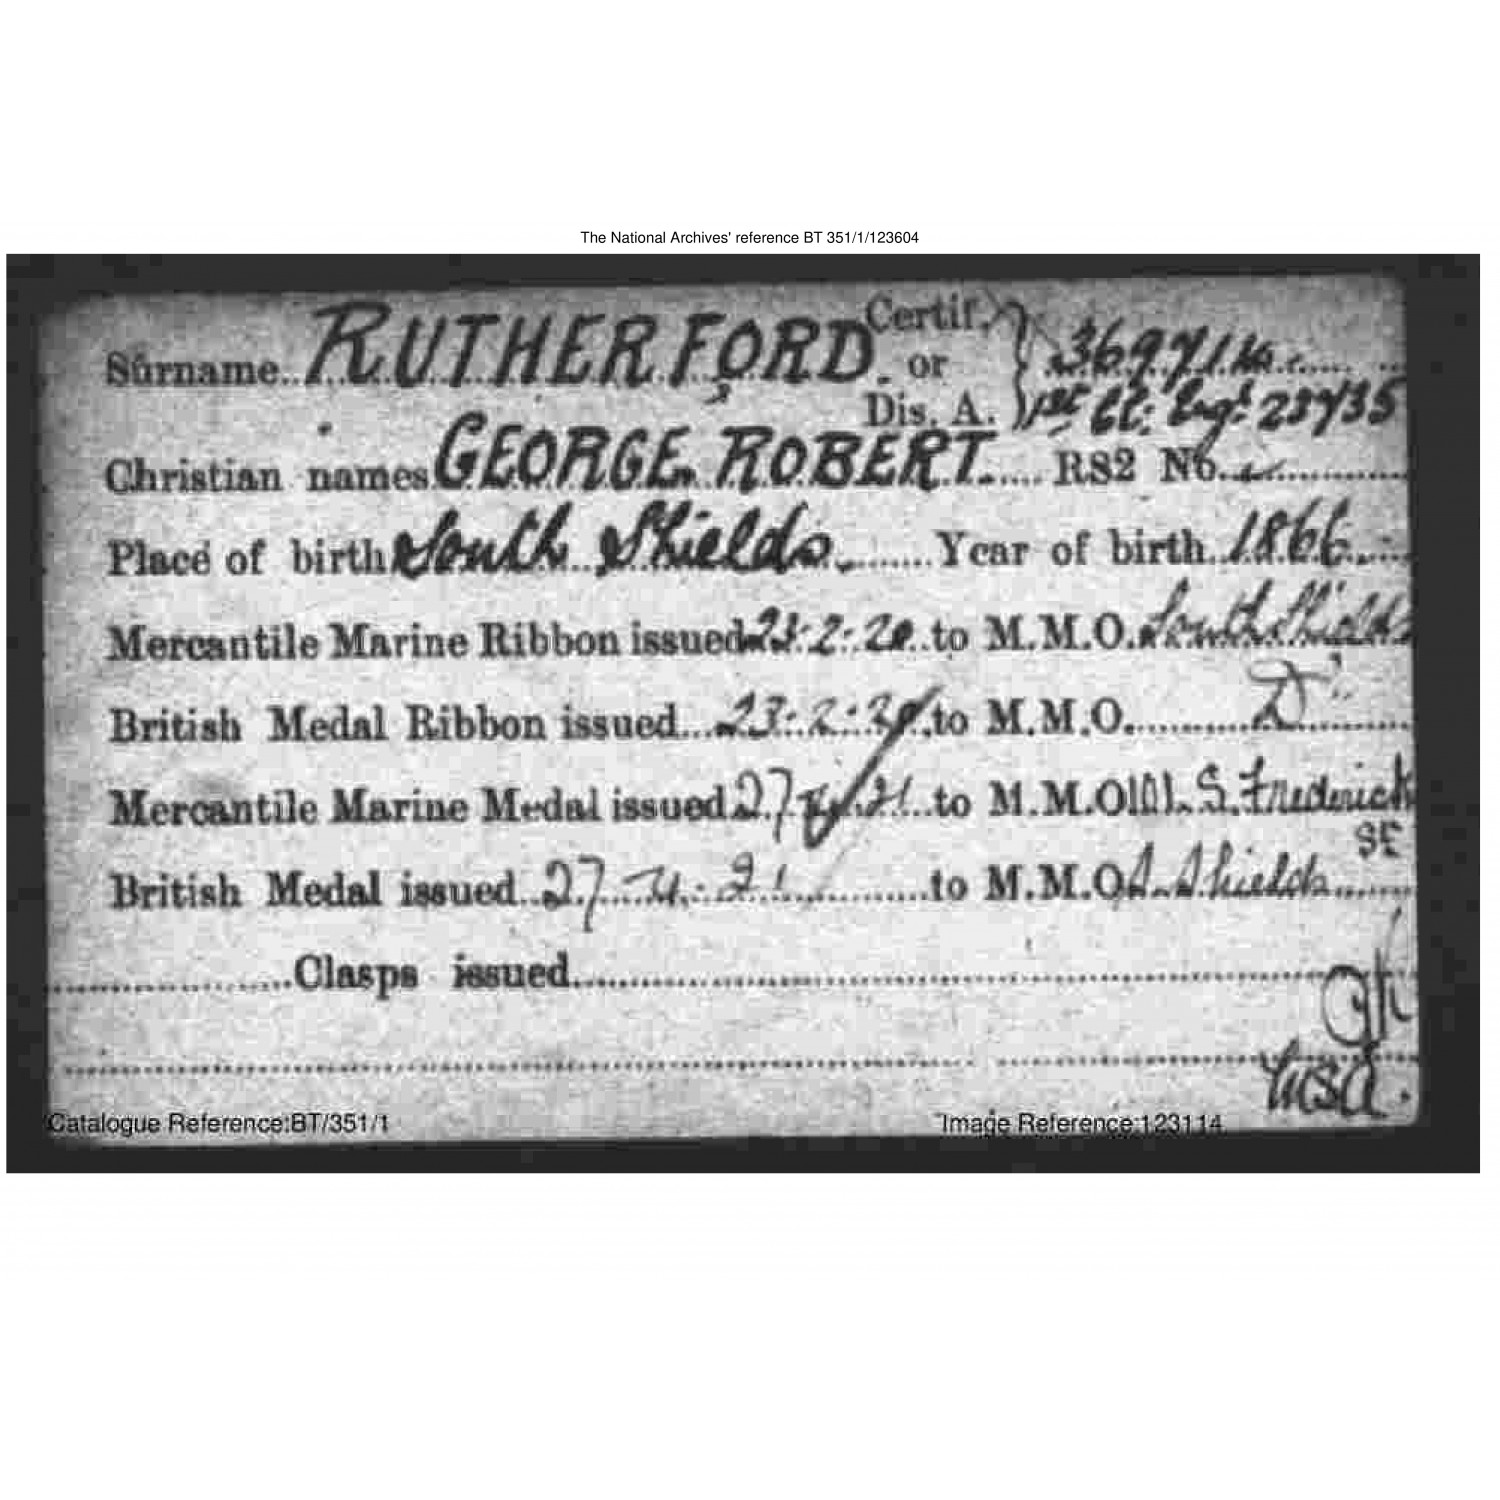 The National Archives' reference BT 351/1/123604
Surname RUTHERFORD Certif. or Dis. A.
1st Cl: Engr 28735
Christian names GEORGE ROBERT RS2 No.
Place of birth South Shields Year of birth 1866
Mercantile Marine Ribbon issued 23.2.20 to M.M.O. South Shields
British Medal Ribbon issued 23.2.20 to M.M.O. Do
Mercantile Marine Medal issued 27.4.21 to M.M.O. 101 S. Frederick St
British Medal issued 27.4.21 to M.M.O. S. Shields
Clasps issued
Catalogue Reference:BT/351/1 Image Reference:123114